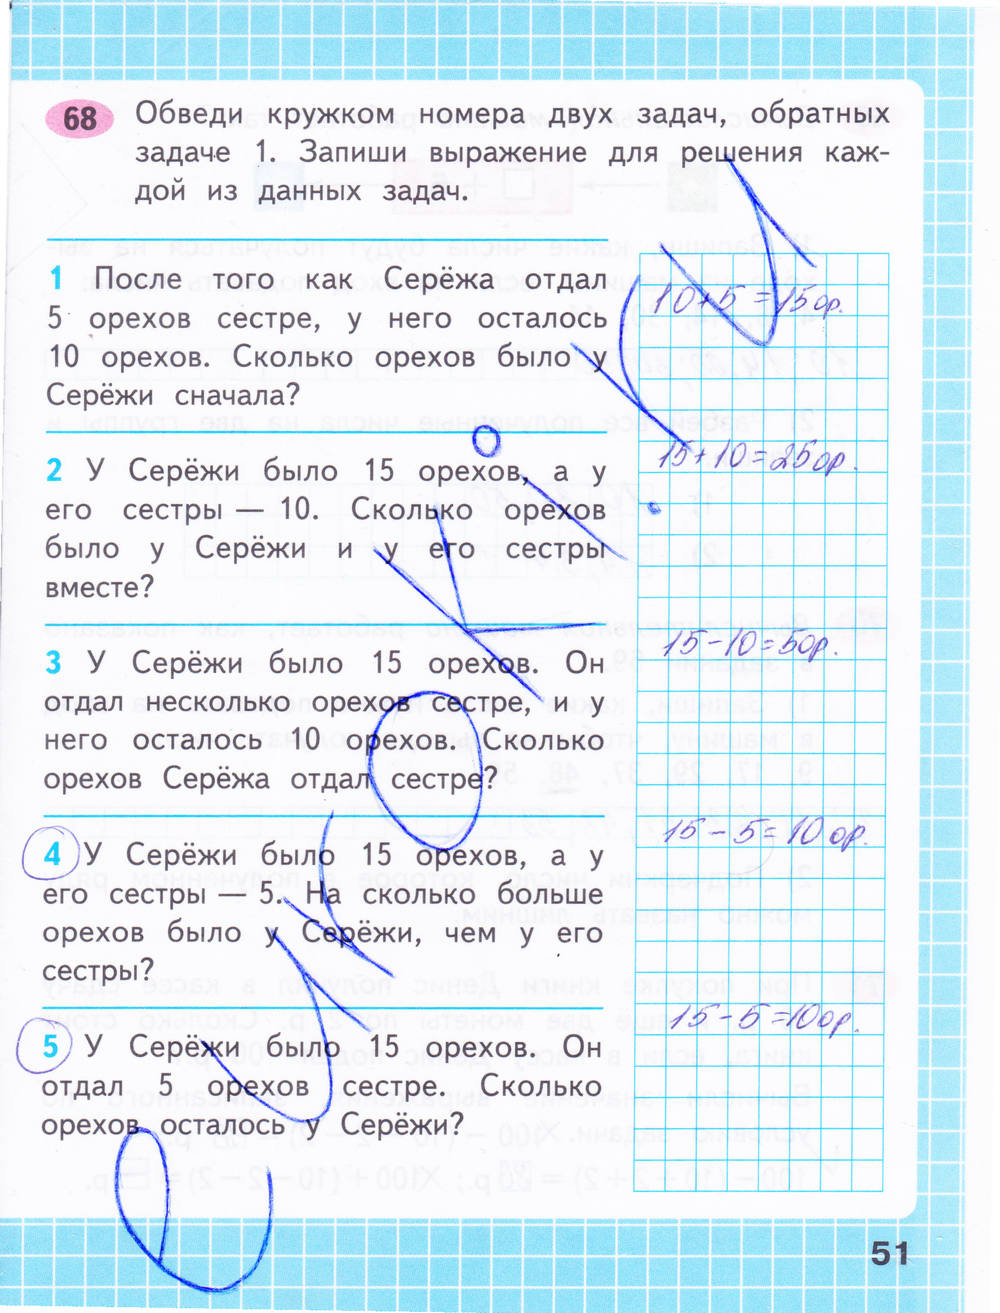 68 Обведи кружком номера двух задач, обратных
задаче 1. Запиши выражение для решения каж-
дой из данных задач.
1 После того как Серёжа отдал
5 орехов сестре, у него осталось
10 орехов. Сколько орехов было у
Серёжи сначала?
10+5=15ор.
2 У Серёжи было 15 орехов, а у
его сестры — 10. Сколько орехов
было у Серёжи и у его сестры
вместе?
15+10=25ор.
3 У Серёжи было 15 орехов. Он
отдал несколько орехов сестре, и у
него осталось 10 орехов. Сколько
орехов Серёжа отдал сестре?
15-10=5ор.
4 У Серёжи было 15 орехов, а у
его сестры — 5. На сколько больше
орехов было у Серёжи, чем у его
сестры?
15-5=10 ор.
5 У Серёжи было 15 орехов. Он
отдал 5 орехов сестре. Сколько
орехов осталось у Серёжи?
15-5=10ор.
51